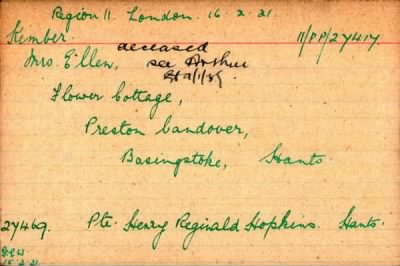 Region 11. London. 16-2-21.
Kember. 11/PP/27417.
Mrs. Ellen, deceased
see Arthur
Flower Cottage,
Preston Candover,
Basingstoke, Hants.
27469. Pte. Henry Reginald Hopkins. Hants.